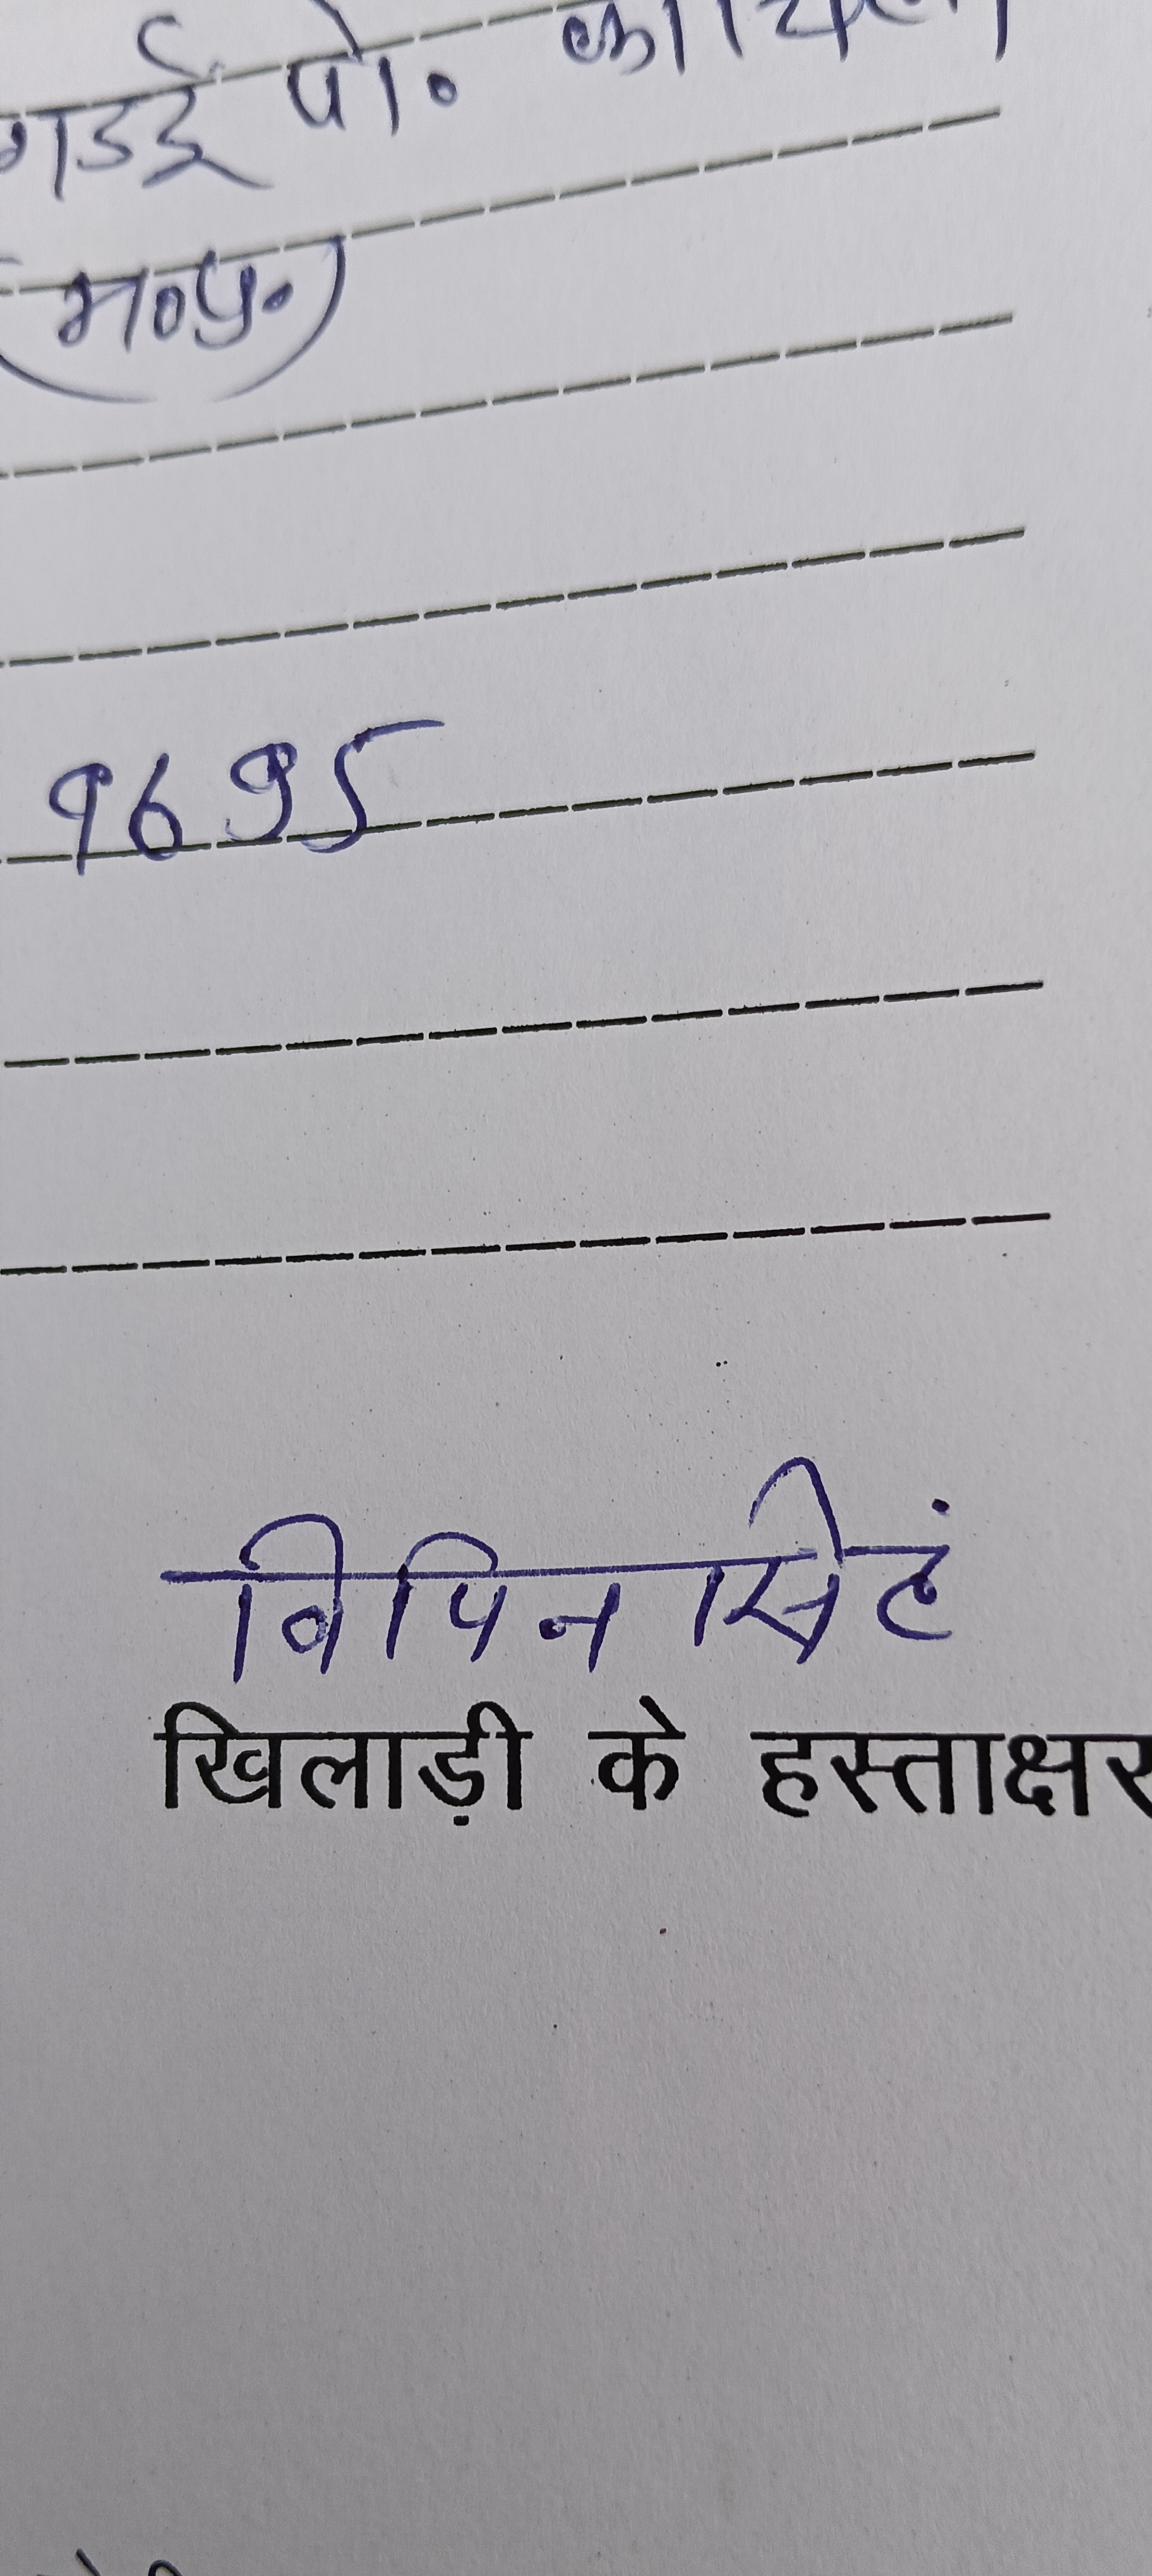 गडई पो.
(म०प्र०)
9695
विपिन सिहं
खिलाड़ी के हस्ताक्षर